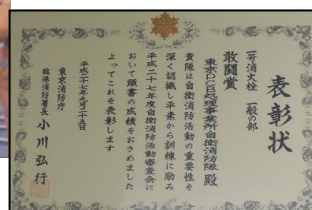 表彰状
一号消火栓 一般の部
敢闘賞
東京PCB処理事業所自衛消防隊 殿
貴隊は自衛消防活動の重要性を
深く認識し平素から訓練に励み
平成二十七年度自衛消防活動審査会に
おいて頭書の成績をおさめました
よってこれを表彰します
平成二十七年九月二十五日
東京消防庁
臨港消防署長 小川弘行